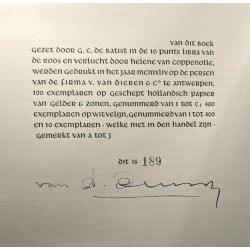 van dit boek
gezet door g. c. de batist in de 10 punts libra van
de roos en verlucht door helene van coppenolle,
werden gedrukt in het jaar mcmxliv op de persen
van de firma v. van dieren & cº te antwerpen,
100 exemplaren op geschept hollandsch papier
van gelder & zonen, genummerd van 1 tot c; 400
exemplaren op witvelijn, genummerd van 1 tot 400
en 10 exemplaren - welke niet in den handel zijn -
gemerkt van a tot j
dit is 189
van